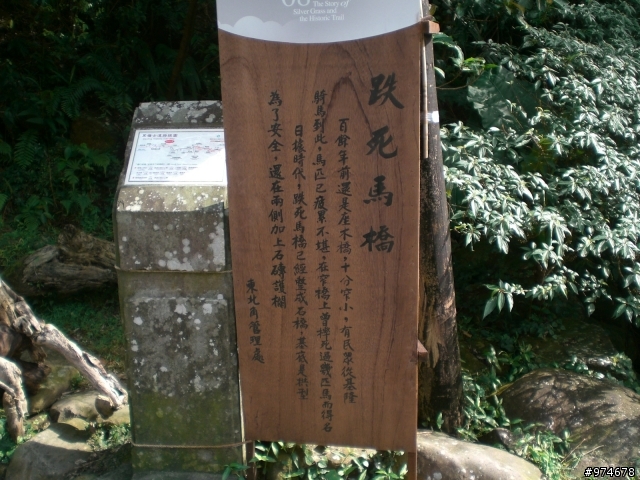 The Story of
Silver Grass and
the Historic Trail
跌死馬橋
百餘年前還是座木橋，十分窄小，有民眾從基隆
騎馬到此，馬匹已疲累不堪，在窄橋上曾摔死過數匹馬而得名
日據時代，跌死馬橋已經整成石橋，基底是拱型
為了安全，還在兩側加上石磚護欄
東北角管理處
#974678